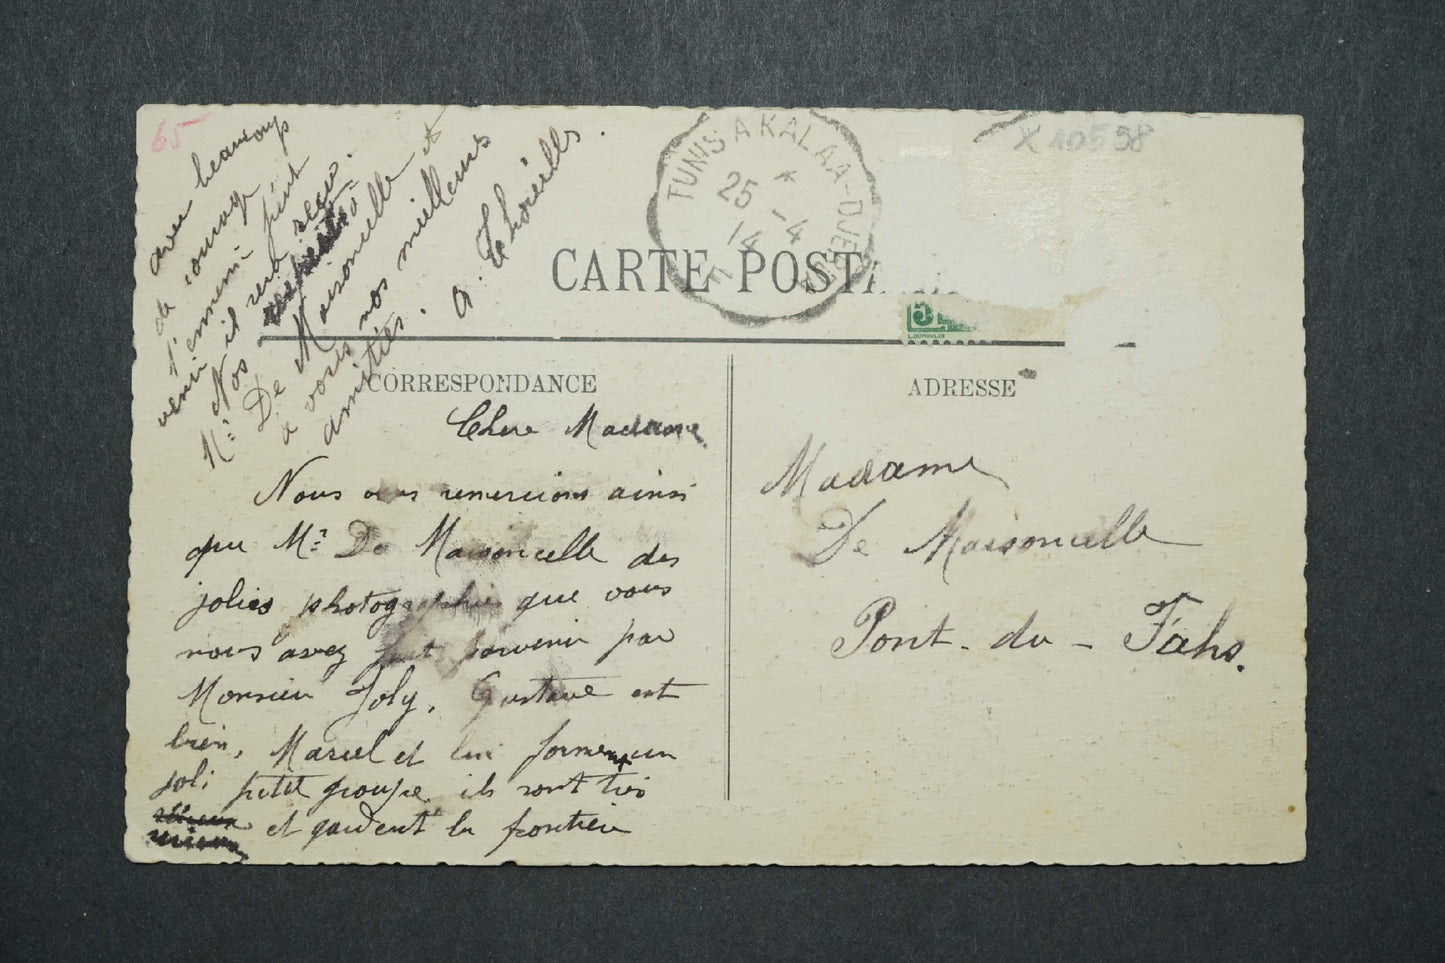 65
X 10598
TUNIS A KALAA-DJERDA
25 -4
14
CARTE POSTA
5
L.DUMOULIN
CORRESPONDANCE
ADRESSE
Chere Madame
Nous vous remercions ainsi
que Mr De Maisoncelle des
jolies photographies que vous
nous avez fait parvenir par
Monsieur Joly, Gustave est
bien, Marcel et lui forment un
joli petit groupe ils sont très
et gardent la frontière
avec beaucoup
de courage
l'ennemi peut
venir il sera reçu.
Nos
Mr De Maisoncelle &
a vous nos meilleurs
amitiés.
Madame
De Maisoncelle
Pont-du-Fahs.